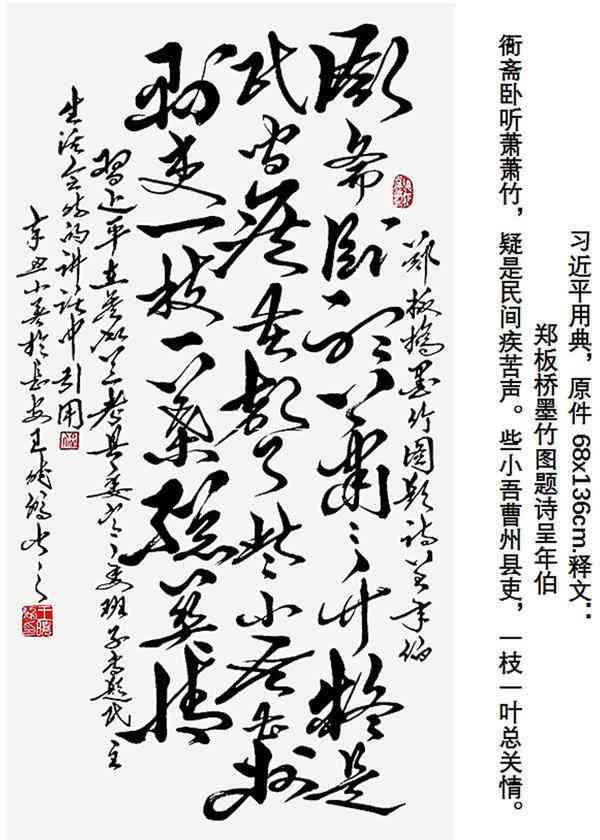 习近平用典，原件 68x136cm.释文：
郑板桥墨竹图题诗呈年伯
衙斋卧听萧萧竹，疑是民间疾苦声。些小吾曹州县吏，一枝一叶总关情。
郑板桥墨竹图题诗呈年伯
衙斋卧听萧萧竹疑是
民间疾苦声些小吾曹州
县吏一枝一叶总关情
习近平在参加兰考县委常委班子专题民主
生活会时的讲话中引用
辛丑小春於長安王